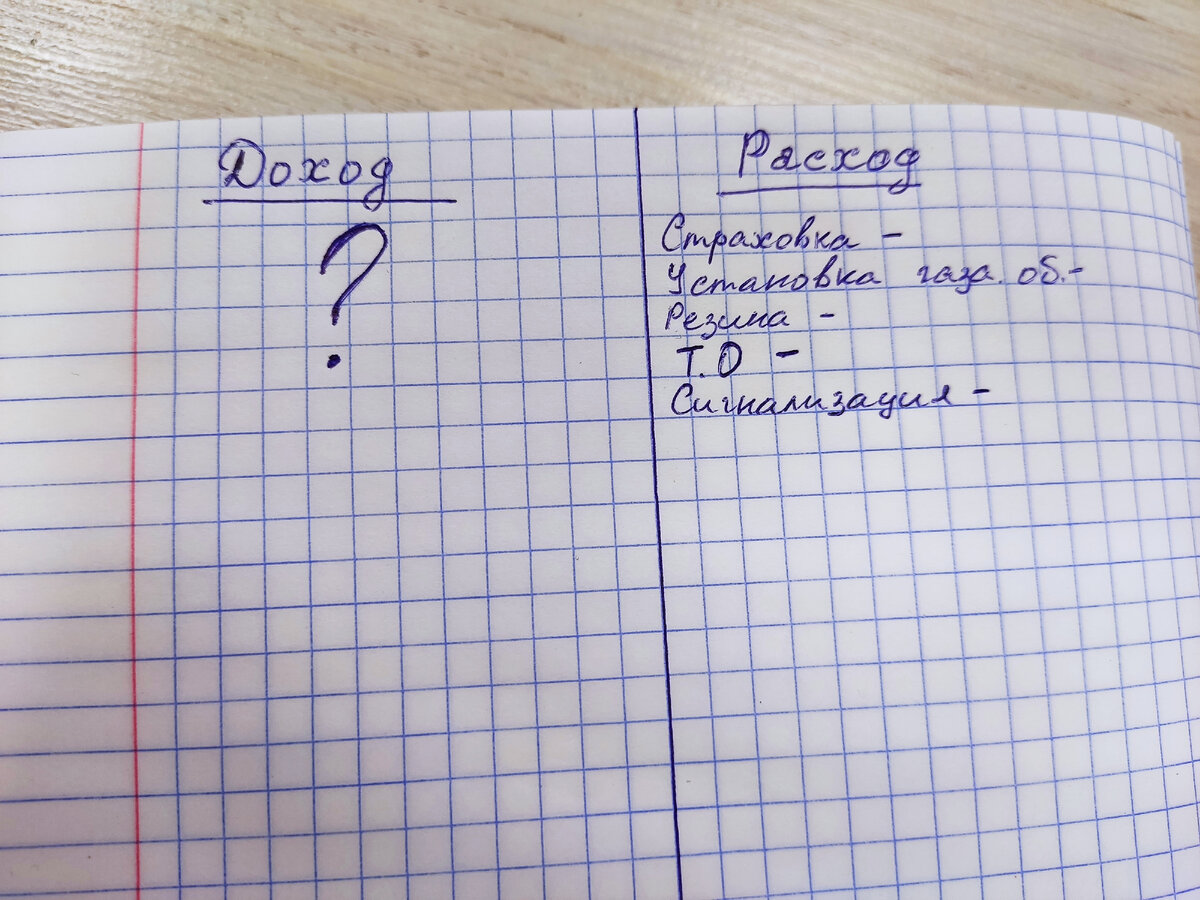 Доход
?
Расход
Страховка -
Установка газа. об.-
Резина -
Т.О -
Сигнализация -